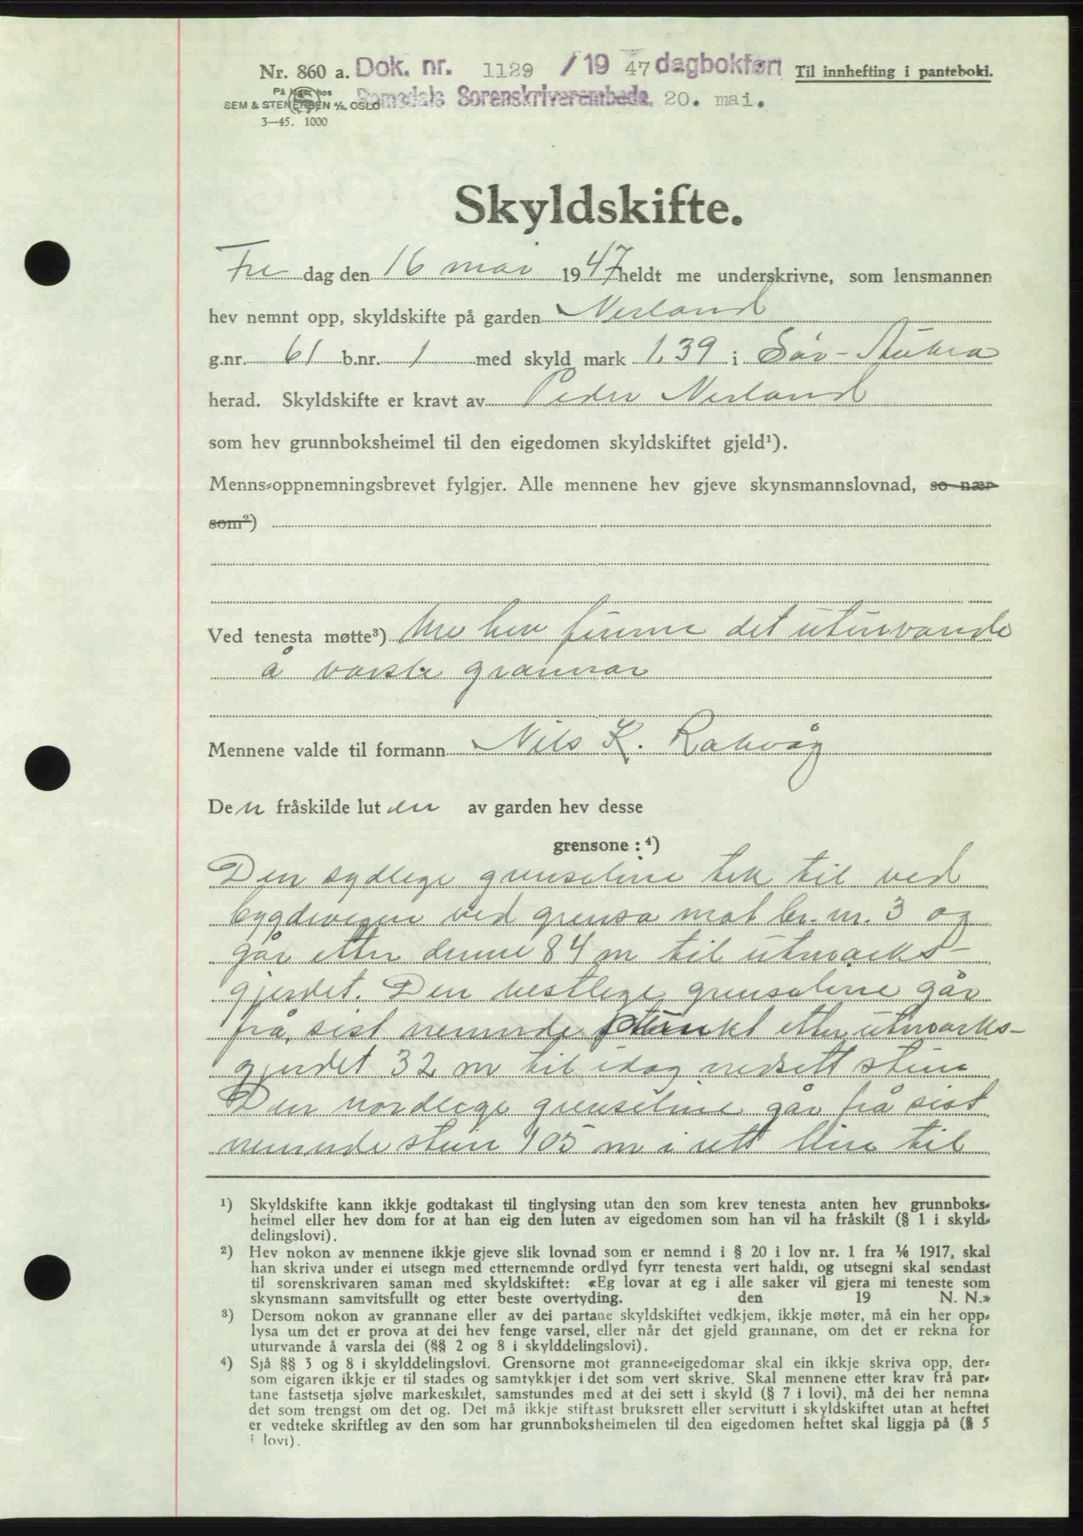 Nr. 860 a. Dok. nr. 1129 / 19 47 dagbokført Til innhefting i panteboki.
På hos
SEM & STENERSEN A/S, OSLO Romsdals Sorenskriverembede, 20. mai.
3—45. 1000
Skyldskifte.
Fre dag den 16 mai 1947 heldt me underskrivne, som lensmannen
hev nemnt opp, skyldskifte på garden Nerland
g.nr. 61 b.nr. 1 med skyld mark 1,39 i Sør-Aukra
herad. Skyldskifte er kravt av Peder Nerland
som hev grunnboksheimel til den eigedomen skyldskiftet gjeld¹).
Menns-oppnemningsbrevet fylgjer. Alle mennene hev gjeve skynsmannslovnad, so nær
som²)
Ved tenesta møtte³) Me hev funne det uturvande
å varsle grannar
Mennene valde til formann Nils K. Rakvåg
Den fråskilde luten av garden hev desse
grensone :⁴)
Den sydlege grenseline tek til ved
bygdevegen ved grensa mot br. nr. 3 og
går etter denne 84 m til utmarks-
gjerdet. Den vestlege grenseline går
frå sist nemnde punkt etter utmarks-
gjerdet 32 m til idag nedsett stein
Den nordlege grenseline går frå sist
nemnde stein 105 m i rett line til
¹) Skyldskifte kann ikkje godtakast til tinglysing utan den som krev tenesta anten hev grunnboks-
heimel eller hev dom for at han eig den luten av eigedomen som han vil ha fråskilt (§ 1 i skyld-
delingslovi).
²) Hev nokon av mennene ikkje gjeve slik lovnad som er nemnd i § 20 i lov nr. 1 fra 1/6 1917, skal
han skriva under ei utsegn med etternemnde ordlyd fyrr tenesta vert haldi, og utsegni skal sendast
til sorenskrivaren saman med skyldskiftet: «Eg lovar at eg i alle saker vil gjera mi teneste som
skynsmann samvitsfullt og etter beste overtyding. den 19 N. N.»
³) Dersom nokon av grannane eller av dei partane skyldskiftet vedkjem, ikkje møter, må ein her opp-
lysa um det er prova at dei hev fenge varsel, eller når det gjeld grannane, om det er rekna for
uturvande å varsla dei (§§ 2 og 8 i skylddelingslovi).
⁴) Sjå §§ 3 og 8 i skylddelingslovi. Grensorne mot granne-eigedomar skal ein ikkje skriva opp, der-
som eigaren ikkje er til stades og samtykkjer i det som vert skrive. Skal mennene etter krav frå par-
tane fastsetja sjølve markeskilet, samstundes med at dei sett i skyld (§ 7 i lovi), må dei her nemna
det som trengst om det og. Det må ikkje stiftast bruksrett eller servitutt i skyldskiftet utan at heftet
er vedteke skriftleg av den som har grunnboksheimelen til den eigedomen heftet skal liggja på (§ 5
i lovi).